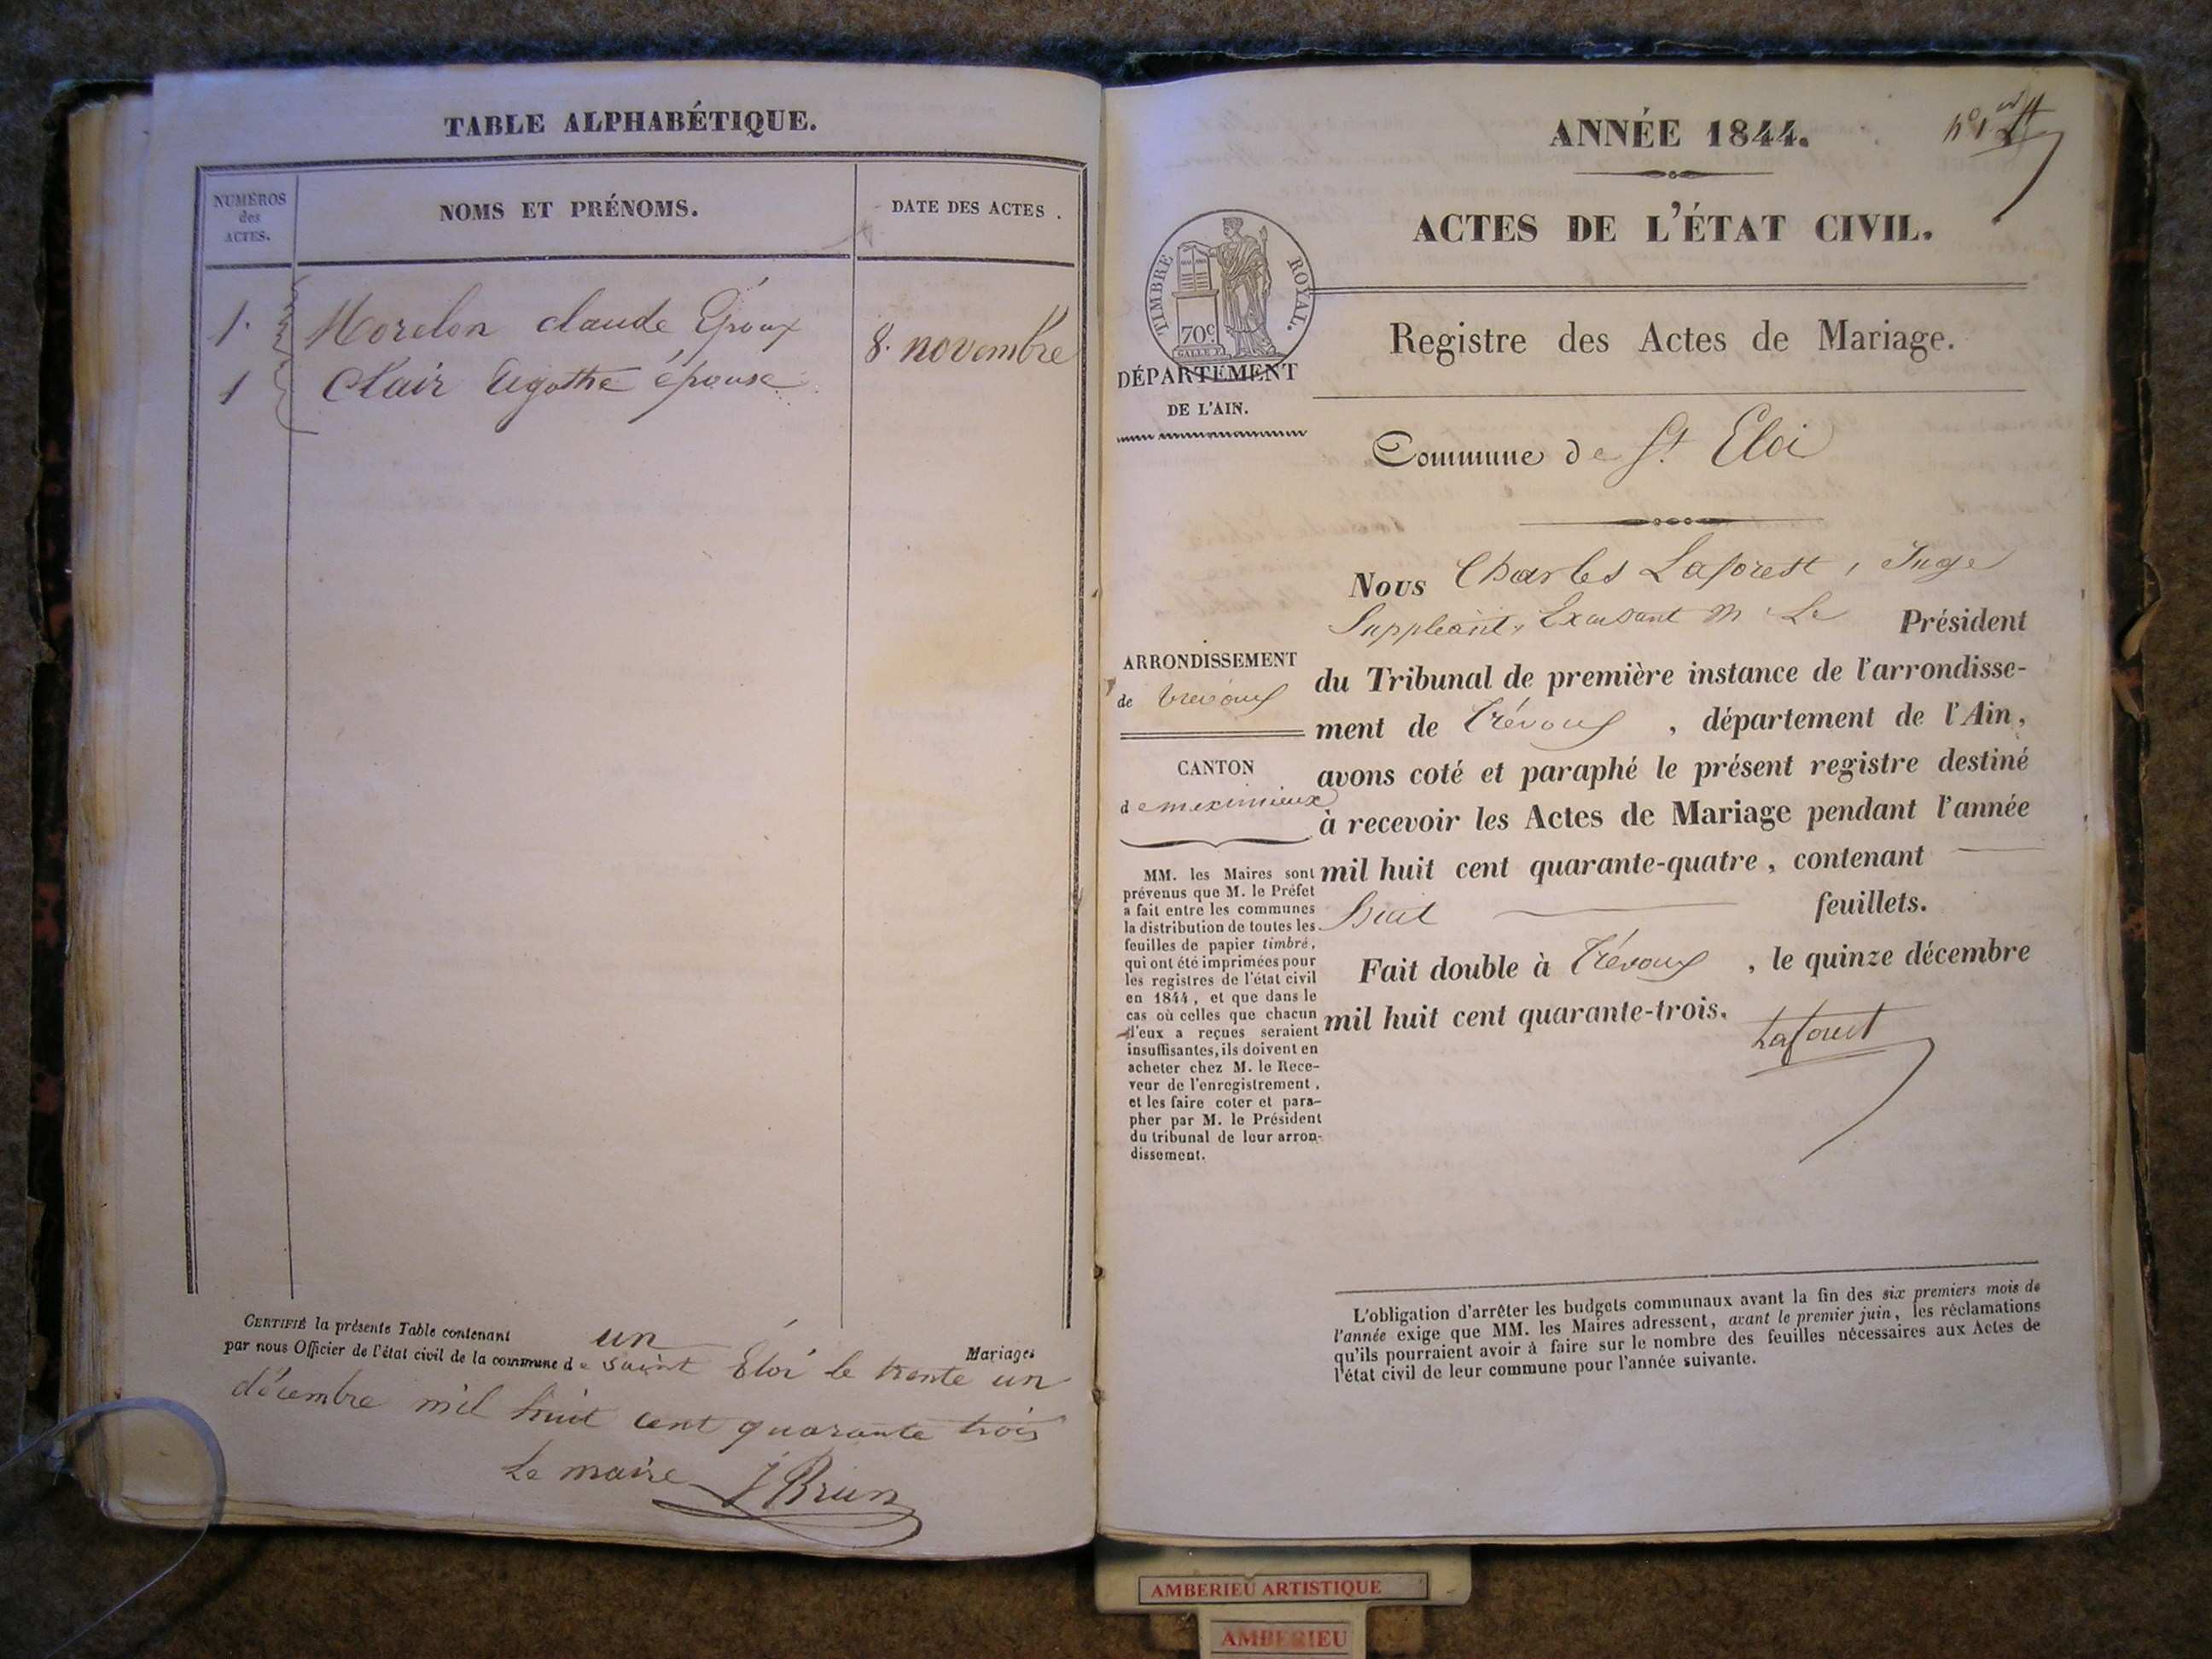 TABLE ALPHABÉTIQUE.
NUMÉROS
des
ACTES.
NOMS ET PRÉNOMS.
DATE DES ACTES.
1. Morelon claude Epoux
8. novembre
1 Clair Agathe épouse
CERTIFIÉ la présente Table contenant un Mariages
par nous Officier de l'état civil de la commune de saint Eloi le trente un
décembre mil huit cent quarante trois
Le maire J Brun
ANNÉE 1844.
ACTES DE L'ÉTAT CIVIL.
TIMBRE ROYAL.
70c
DÉPARTEMENT
DE L'AIN.
Registre des Actes de Mariage.
Commune de St. Eloi
ARRONDISSEMENT
de trevoux
CANTON
de meximieux
MM. les Maires sont
prévenus que M. le Préfet
a fait entre les communes
la distribution de toutes les
feuilles de papier timbré,
qui ont été imprimées pour
les registres de l'état civil
en 1844, et que dans le
cas où celles que chacun
d'eux a reçues seraient
insuffisantes, ils doivent en
acheter chez M. le Rece-
veur de l'enregistrement,
et les faire coter et para-
pher par M. le Président
du tribunal de leur arron-
dissement.
Nous Charles Laforest, Juge
Suppléant, Excusant M Le Président
du Tribunal de première instance de l'arrondisse-
ment de Trévoux, département de l'Ain,
avons coté et paraphé le présent registre destiné
à recevoir les Actes de Mariage pendant l'année
mil huit cent quarante-quatre, contenant
huit feuillets.
Fait double à Trévoux, le quinze décembre
mil huit cent quarante-trois.
Laforest
L'obligation d'arrêter les budgets communaux avant la fin des six premiers mois de
l'année exige que MM. les Maires adressent, avant le premier juin, les réclamations
qu'ils pourraient avoir à faire sur le nombre des feuilles nécessaires aux Actes de
l'état civil de leur commune pour l'année suivante.
AMBERIEU ARTISTIQUE
AMBERIEU